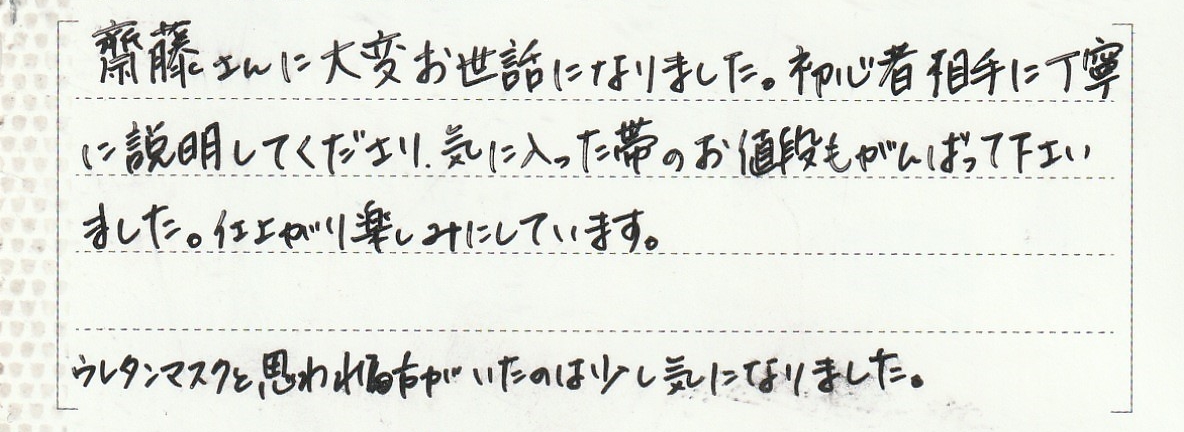 齋藤さんに大変お世話になりました。初心者相手に丁寧
に説明してくださり、気に入った帯のお値段もがんばって下さい
ました。仕上がり楽しみにしています。
ウレタンマスクと思われる方がいたのは少し気になりました。